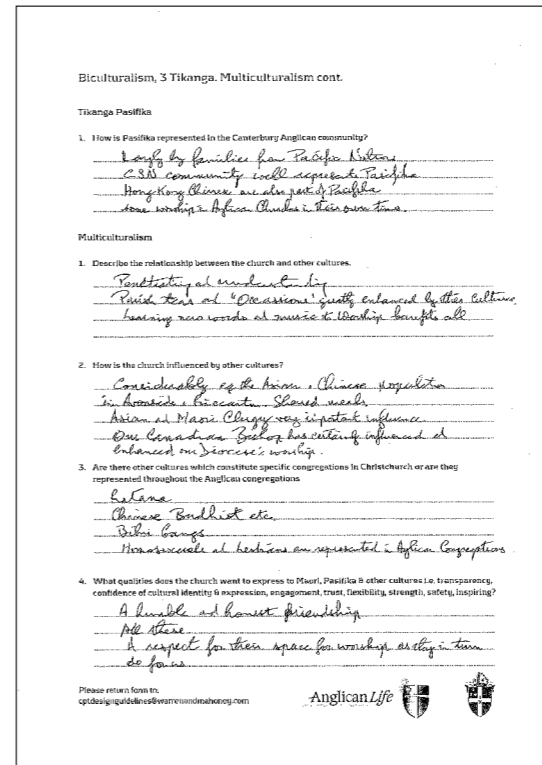 Biculturalism, 3 Tikanga. Multiculturalism cont.
Tikanga Pasifika
1. How is Pasifika represented in the Canterbury Anglican community?
by families from Pacific Nations
CSN community well represents Pasifika
Hong Kong Chinese are also part of Pacifika
some worship in Anglican Churches in their own time.
Multiculturalism
1. Describe the relationship between the church and other cultures.
Parish teas and "Occassions' greatly enhanced by other Cultures.
Learning new words and music to Worship benefits all
2. How is the church influenced by other cultures?
Considerably eg the Asian + Chinese population
in Avonside + Riccarton. Shared meals
Asian and Maori Clergy very important influence
Our Canadian Bishop has certainly influenced and
enhanced our Diocese's worship.
3. Are there other cultures which constitute specific congregations in Christchurch or are they
represented throughout the Anglican congregations
Ratana
Chinese Budhist etc.
Gangs
Homosexuals and lesbians are represented in Anglican Congregations
4. What qualities does the church want to express to Maori, Pasifika & other cultures i.e. transparency,
confidence of cultural identity & expression, engagement, trust, flexibility, strength, safety, inspiring?
A humble and honest friendship
All these
A respect for their space for worship as they in turn
do for us
Please return form to:
cptdesignguidelines@warrenandmahoney.com
Anglican Life